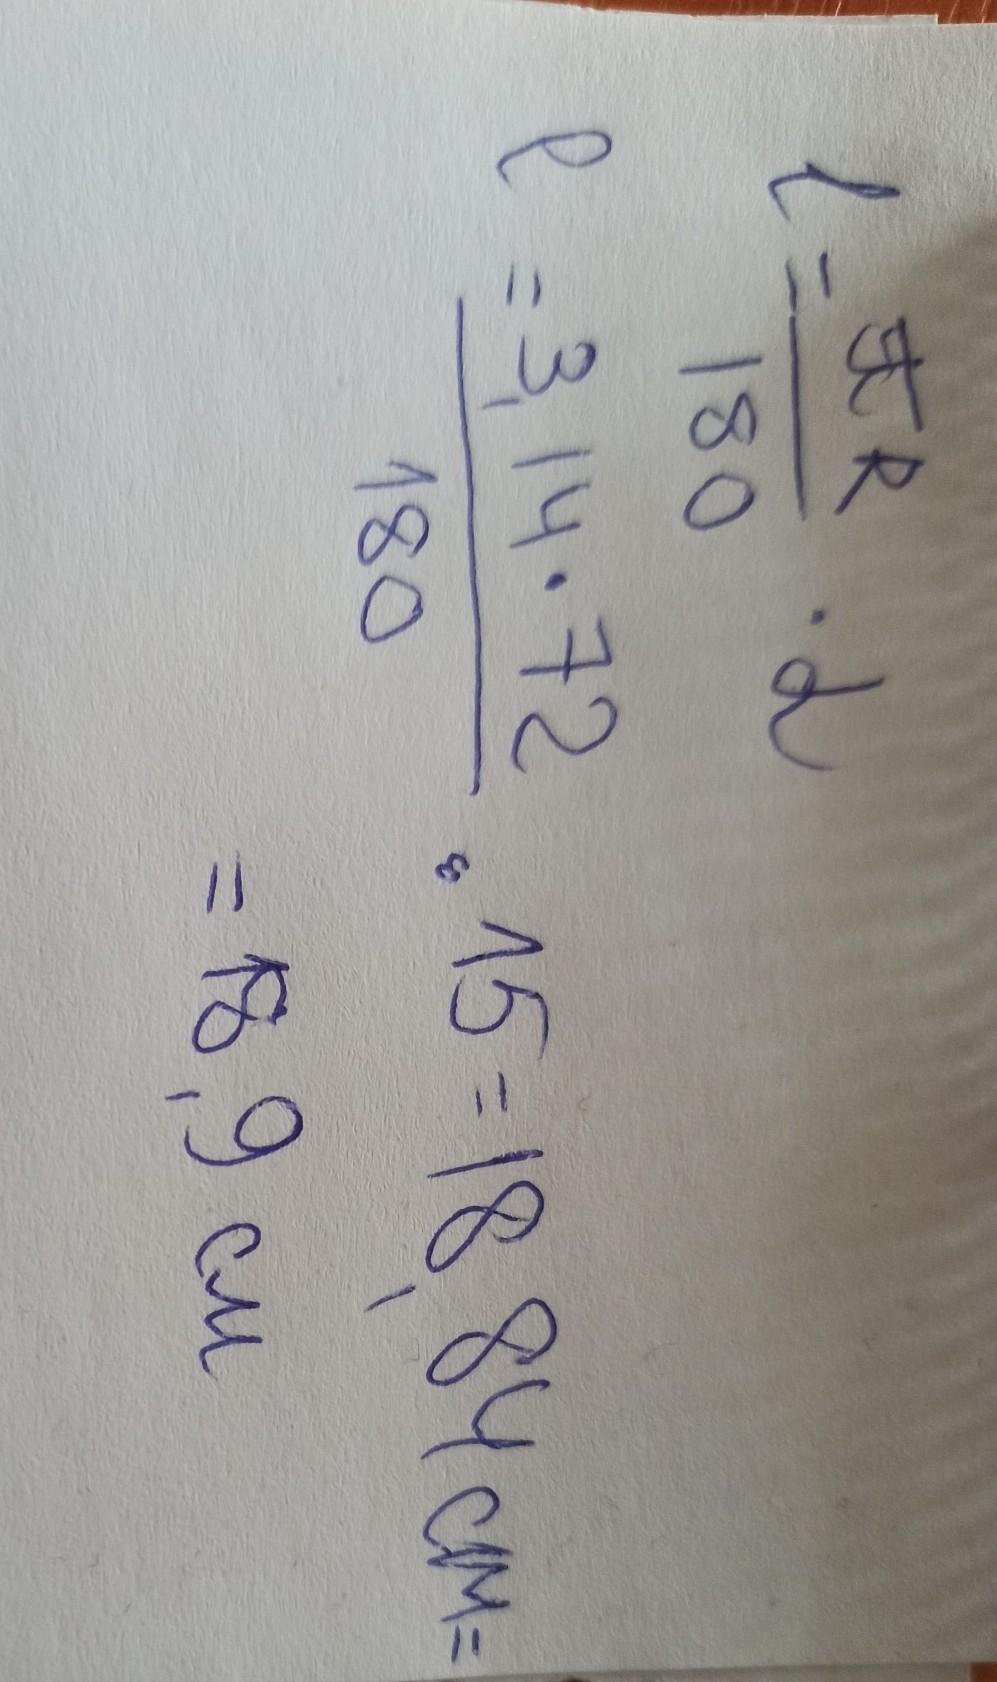 l = πR/180 · α
l = 3,14 · 72/180 · 15 = 18,84 см =
= 18,9 см